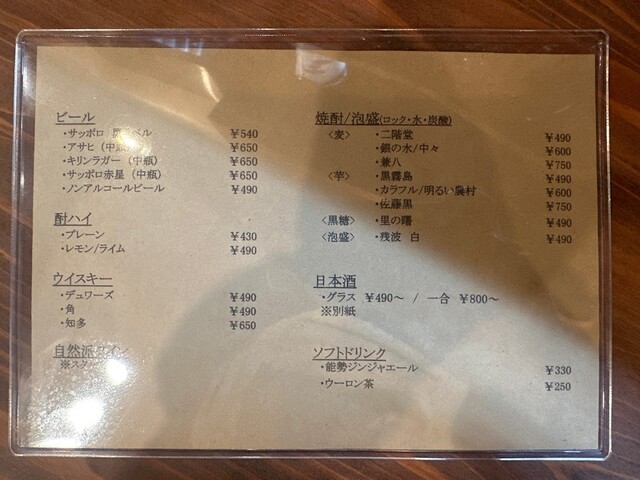 ビール
・サッポロ ラベル ¥540
・アサヒ (中瓶) ¥650
・キリンラガー (中瓶) ¥650
・サッポロ赤星 (中瓶) ¥650
・ノンアルコールビール ¥490
酎ハイ
・プレーン ¥430
・レモン/ライム ¥490
ウイスキー
・デュワーズ ¥490
・角 ¥490
・知多 ¥650
自然派
※ス
焼酎/泡盛(ロック・水・炭酸)
<麦> ・二階堂 ¥490
・銀の水/中々 ¥600
・兼八 ¥750
<芋> ・黒霧島 ¥490
・カラフル/明るい農村 ¥600
・佐藤黒 ¥750
<黒糖> ・里の曙 ¥490
<泡盛> ・残波 白 ¥490
日本酒
・グラス ¥490～ / 一合 ¥800～
※別紙
ソフトドリンク
・能勢ジンジャエール ¥330
・ウーロン茶 ¥250